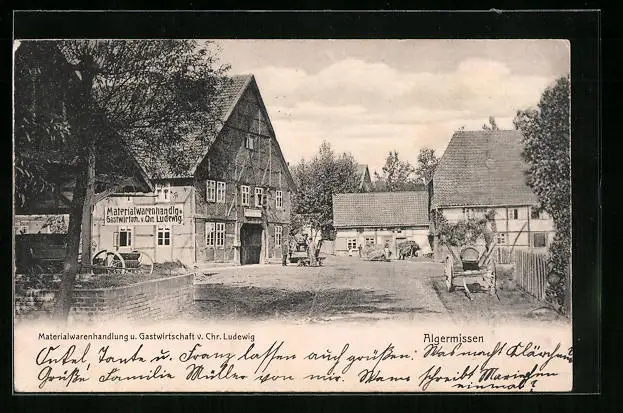 Materialwarenhandlg. u.
Gastwirtsch. v. Chr. Ludewig.
Materialwarenhandlung u. Gastwirtschaft v. Chr. Ludewig
Algermissen
Onkel, Tante u. Franz lassen auch grüßen. Was macht Klärchen?
Grüße Familie Müller von mir. Wann schreibt Mariechen
einmal?